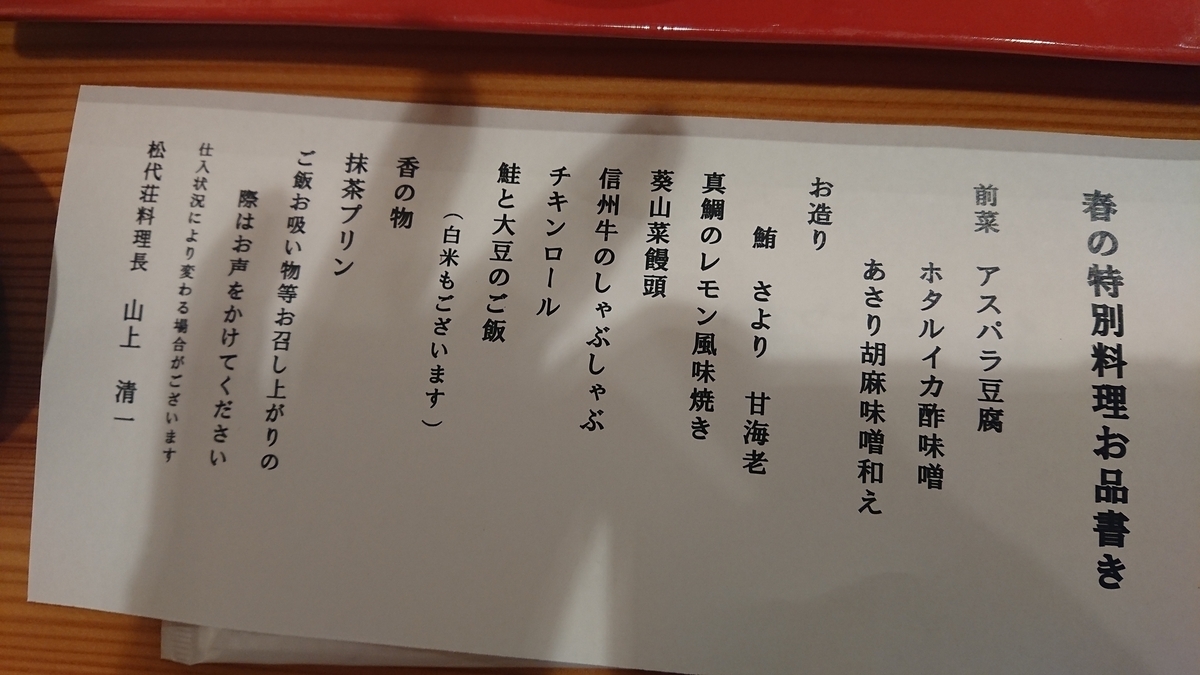 春の特別料理お品書き
前菜　アスパラ豆腐
ホタルイカ酢味噌
あさり胡麻味噌和え
お造り
鮪　さより　甘海老
真鯛のレモン風味焼き
葵山菜饅頭
信州牛のしゃぶしゃぶ
チキンロール
鮭と大豆のご飯
（白米もございます）
香の物
抹茶プリン
ご飯お吸い物等お召し上がりの
際はお声をかけてください
仕入状況により変わる場合がございます
松代荘料理長　山上　清一